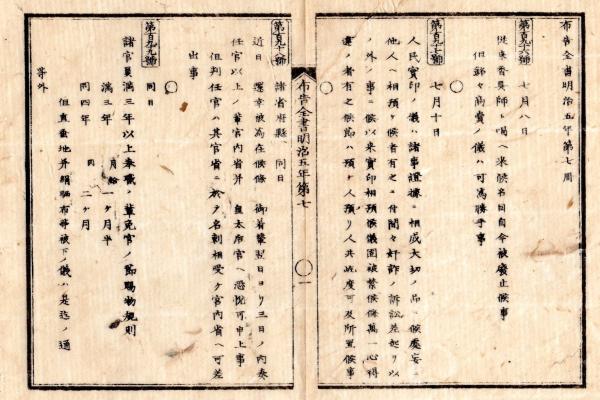 布告全書明治五年第七周
第百九十六號
七月八日
従来香具師ト唱ヘ来候名目自今被廢止候事
但銀々商賣ノ儀ハ可為勝手事
第百九十七號
七月十日
人民實印ノ儀ハ諸事證據ニ相成大切ノ品ニ候處妄ニ
他人ヘ相預ケ候者有之ニ付間々奸詐ノ訴訟差起リ以
ノ外ノ事ニ候以来實印相預候儀固被禁候條萬一心得
違ノ者有之候節ハ預ケ人預リ人共屹度可及所置候事
布告全書明治五年第七
一
第百九十八號
諸省府縣 同日
近日 還幸被為在候條 御着輦翌日ヨリ三日ノ内奏
任官以上ノ華官内省并 皇太后宮ヘ恐悦可申上事
但判任官ハ其官省ニ於テ名刺相受ケ宮内省ヘ可差
出事
第百九十九號
同日
諸官員満三年以上奉職ノ輩免官ノ節賜物規則
満三年 月給 一ヶ月半
同四年 同 二ヶ月
但直垂地并絹晒布等被下ノ儀ハ是迄ノ通
等外